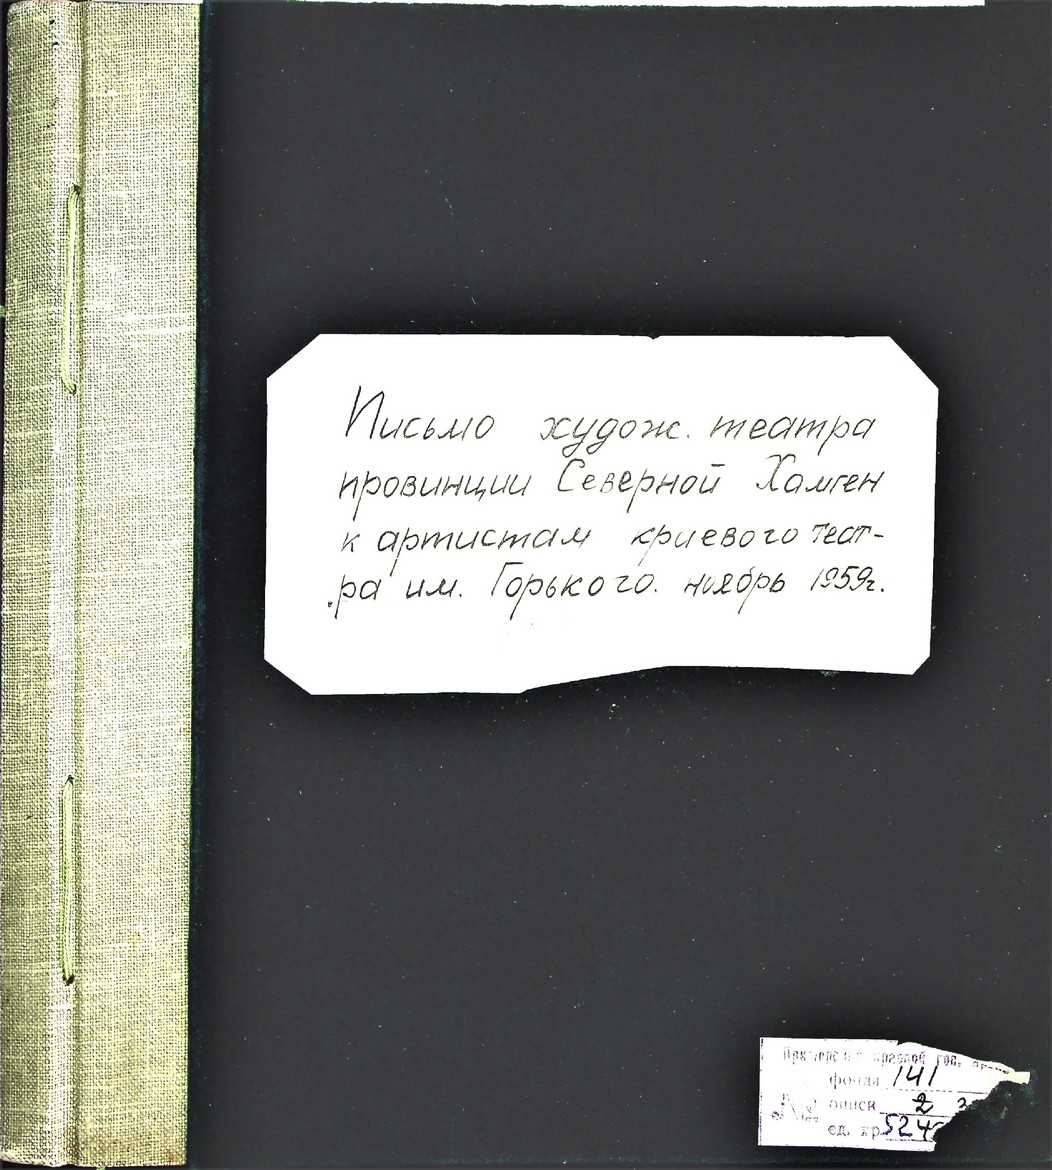 Письмо худож. театра
провинции Северной Хамген
к артистам криевого теат-
ра им. Горького. ноябрь 1959г.
краевой гос.
фонда 141
описи 2
ед. хр. 524